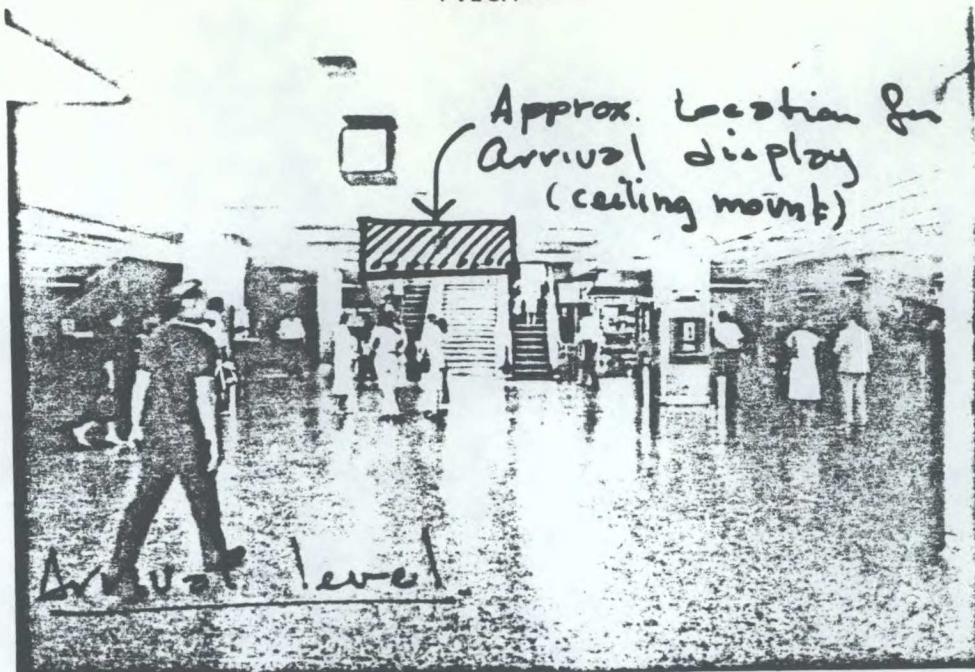 Approx. Location for
Arrival display
(ceiling mount)
Arrival level